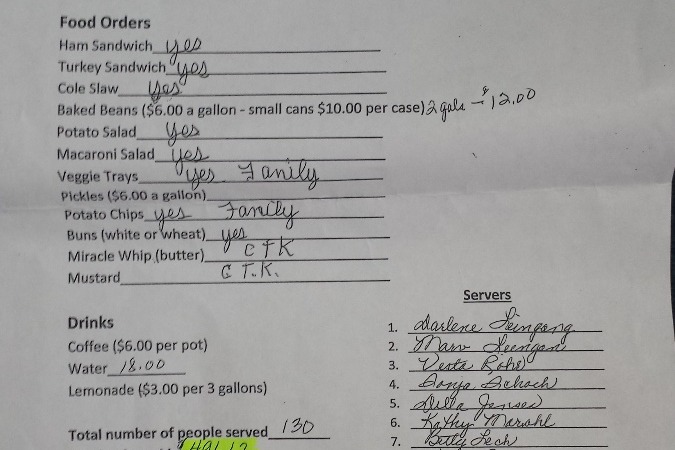 Food Orders
Ham Sandwich yes
Turkey Sandwich yes
Cole Slaw yes
Baked Beans ($6.00 a gallon - small cans $10.00 per case) 2 gals - $12.00
Potato Salad yes
Macaroni Salad yes
Veggie Trays yes Family
Pickles ($6.00 a gallon)
Potato Chips yes Family
Buns (white or wheat) yes
Miracle Whip (butter) CTK
Mustard C T.K.
Servers
Drinks
Coffee ($6.00 per pot)
Water 18.00
Lemonade ($3.00 per 3 gallons)
Total number of people served 130
1. Darlene
2. Marv
3. Vesta
4.
5. Della
6. Kathy Marohl
7. Betty Lech